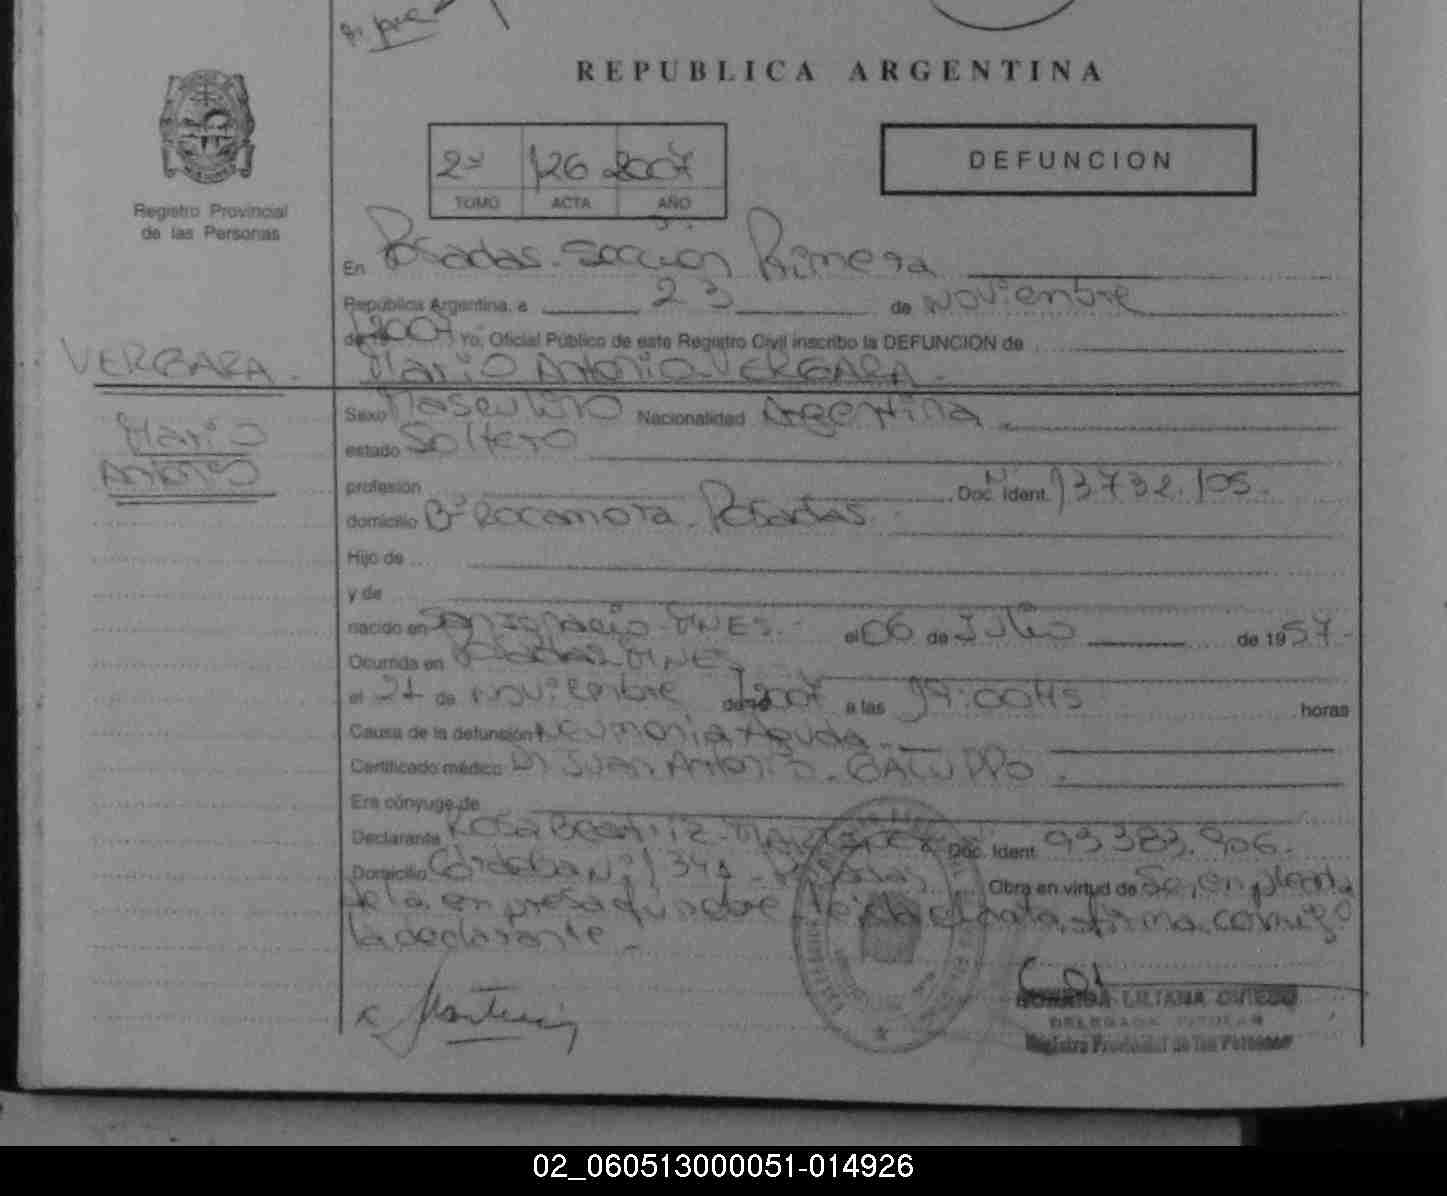 REPUBLICA ARGENTINA
2º 126 2007
TOMO ACTA AÑO
DEFUNCION
Registro Provincial
de las Personas
En Posadas. Sección Primera
República Argentina, a 23 de Noviembre
de 2007 Yo, Oficial Público de este Registro Civil inscribo la DEFUNCION de
VERGARA.
Mario Antonio VERGARA.
Mario
Antonio
Sexo Masculino Nacionalidad Argentina
estado Soltero
profesión Doc. Ident. Nº 13732.105.
domicilio Bº Rocamora. Posadas.
Hijo de
y de
nacido en San Ignacio. MNES. el 06 de Julio de 1957.
Ocurrida en Posadas MNES
el 21 de Noviembre de 2007 a las 17:00HS horas
Causa de la defunción Neumonia Aguda.
Certificado médico Dr Juan Antonio. GALUPPO.
Era cónyuge de
Declarante Rosa Beatriz Doc. Ident. 93383.906.
Domicilio Córdoba Nº 1341. Posadas Obra en virtud de Ser empleada
de la empresa funebre. Leida el acta, firma conmigo
la declarante.
LILIANA OVIEDO
DELEGADA TITULAR
Registro Provincial de las Personas
02_060513000051-014926